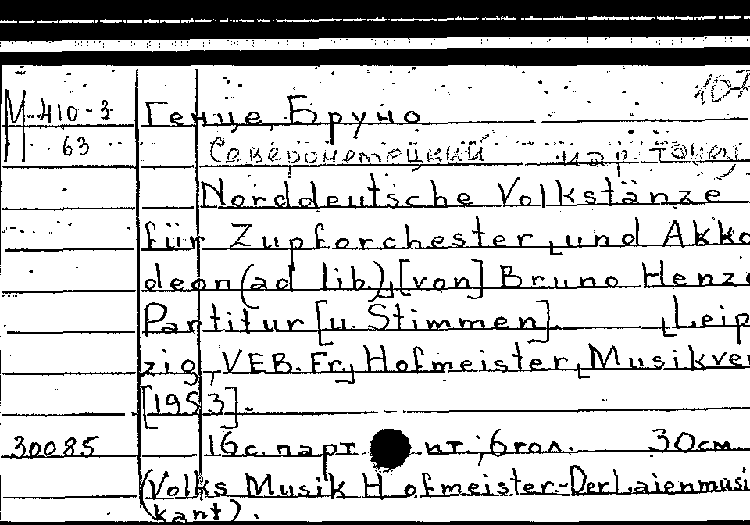 М-410-3 Генце, Бруно
63 Северонемецкий нар. танец
Norddeutsche Volkstänze
für Zupforchester, und Akko
deon (ad lib.), [von] Bruno Henze
Partitur [u. Stimmen]. [Leip
zig, VEB. Fr.] Hofmeister, Musikver
[1953].
30085 16 с. парт. 6 гол. 30 см
(Volks Musik Hofmeister-Der Laienmusi
kant).